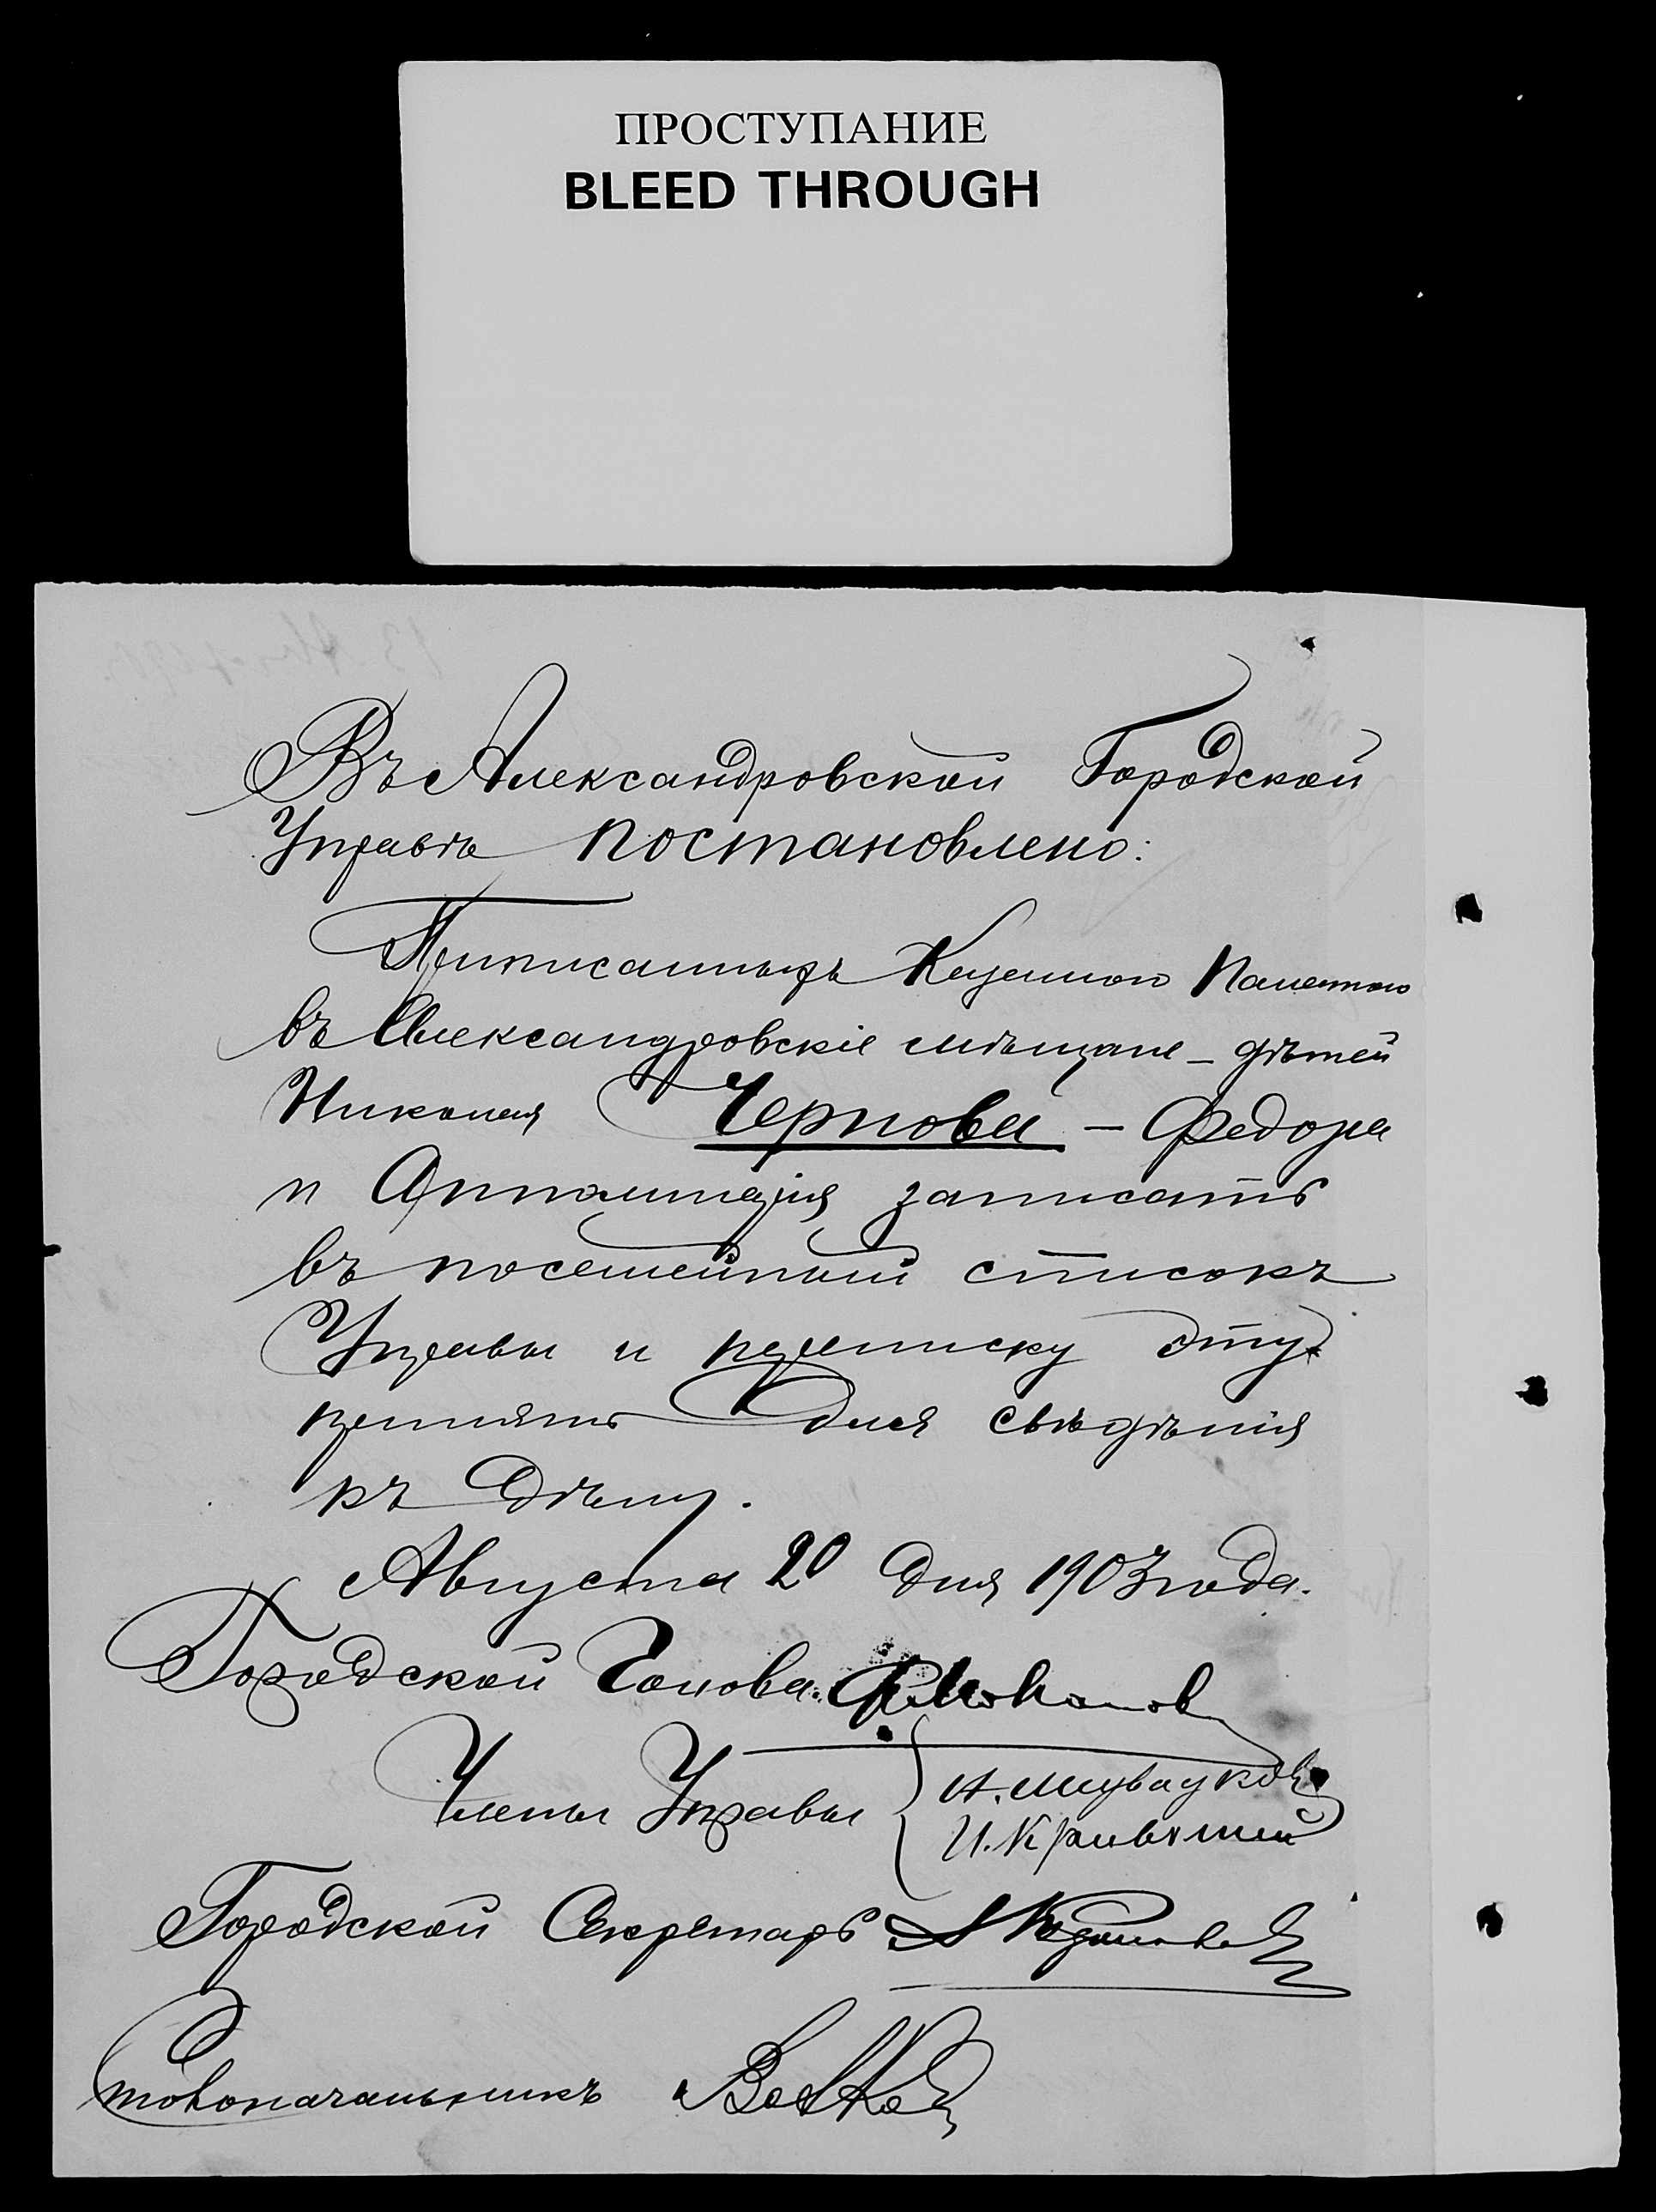 ПРОСТУПАНИЕ
BLEED THROUGH
Въ Александровской Городской
Управѣ постановлено:
Приписанныхъ Казенною Палатою
въ Александровскіе мѣщане - дѣтей
Николая Чернова - Федора
и Апполинарія записать
въ посемейный списокъ
Управы и переписку эту
принять для свѣдѣнія
къ дѣлу.
Августа 20 дня 1903 года.
Городской Голова Ф. Мовчанов
Члены Управы
И.
Городской Секретарь
Столоначальникъ